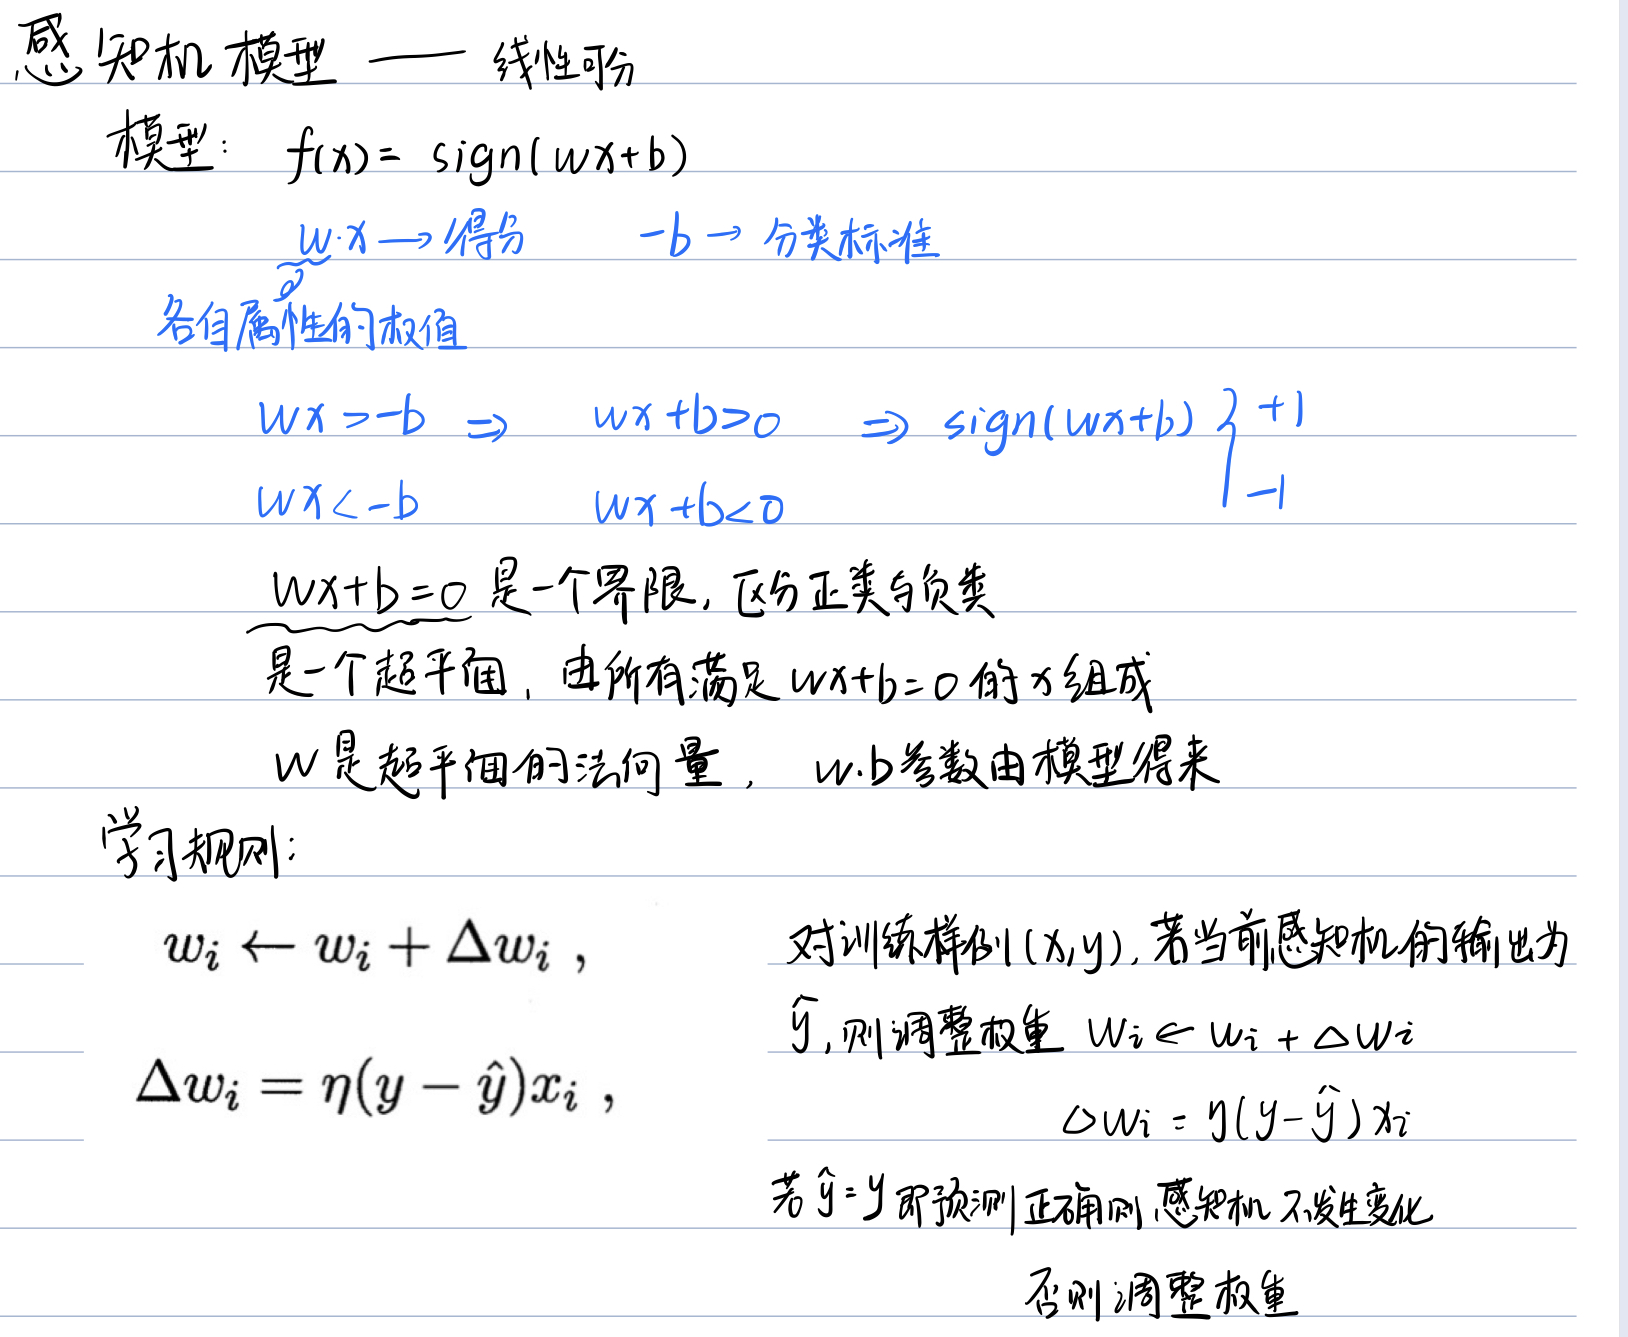 感知机模型 —— 线性可分
模型: f(x) = sign(wx+b)
w·x → 得分 -b → 分类标准
各自属性的权值
wx>-b ⇒ wx+b>0 ⇒ sign(wx+b) } +1
wx<-b wx+b<0 -1
wx+b=0 是一个界限, 区分正类与负类
是一个超平面, 由所有满足 wx+b=0 的 x 组成
w 是超平面的法向量, w.b参数由模型得来
学习规则:
wᵢ ← wᵢ + Δwᵢ ,
Δwᵢ = η(y − ŷ)xᵢ ,
对训练样例(x,y), 若当前感知机的输出为
ŷ, 则调整权重 wᵢ ← wᵢ + Δwᵢ
Δwᵢ = η(y-ŷ)xᵢ
若 ŷ=y 即预测正确则感知机不发生变化
否则调整权重